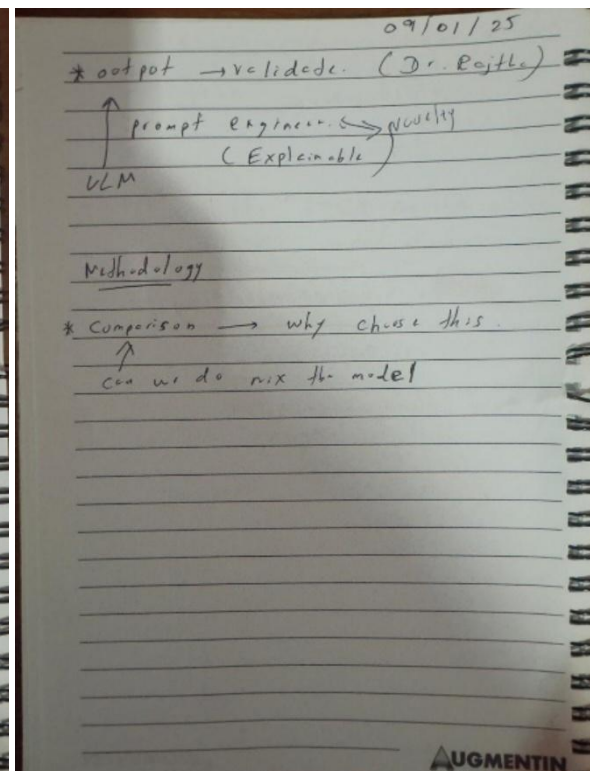 09/01/25
* output → validade. (Dr. Rajtha)
prompt engineer. ↔ Novelty
(Explainable)
VLM
Methodology
* Comparison → why choose this.
can we do mix the model
AUGMENTIN